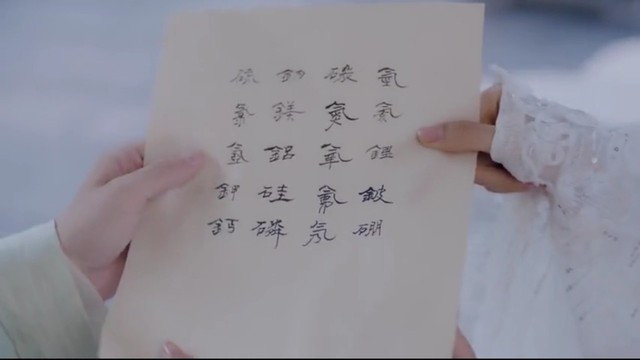 氫氦鋰鈹硼
碳氮氧氟氖
鈉鎂鋁硅磷
硫氯氬鉀鈣